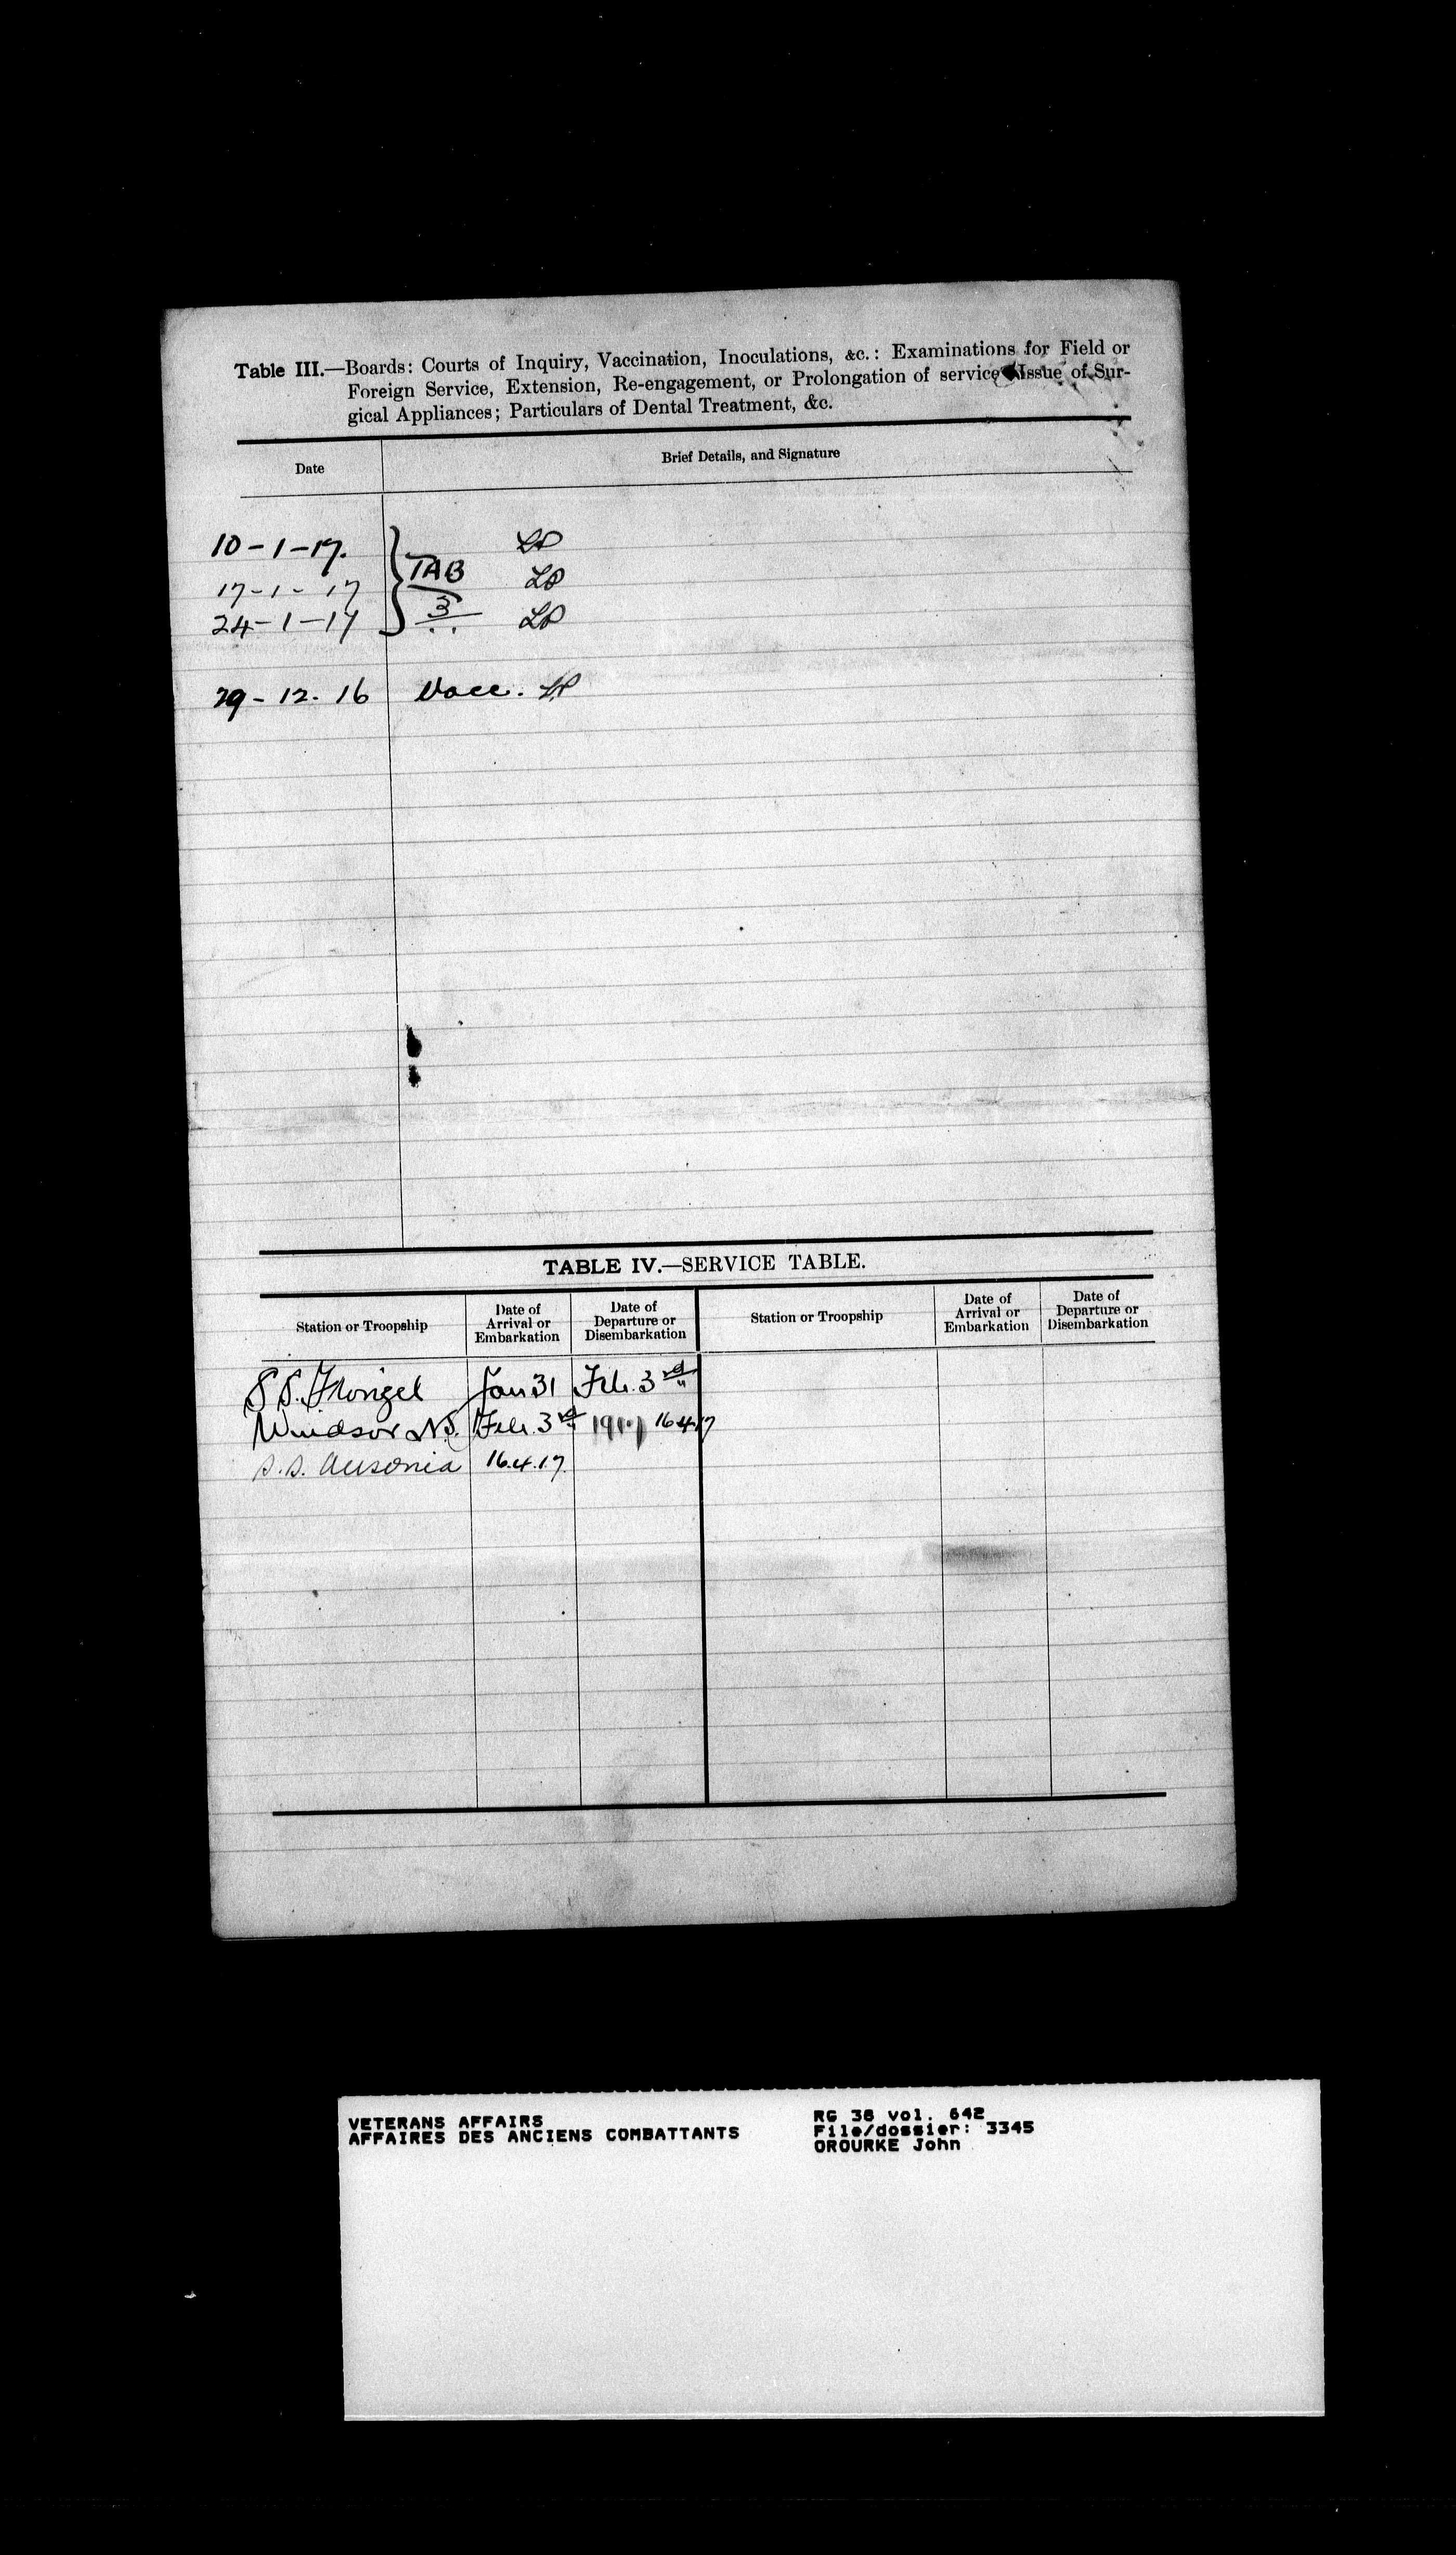 Table III.—Boards: Courts of Inquiry, Vaccination, Inoculations, &c.: Examinations for Field or
Foreign Service, Extension, Re-engagement, or Prolongation of service Issue of Sur-
gical Appliances; Particulars of Dental Treatment, &c.
Date Brief Details, and Signature
10-1-17.
17-1-17 TAB
24-1-17 3
29-12-16 Vacc.
TABLE IV.—SERVICE TABLE.
Station or Troopship Date of Arrival or Embarkation Date of Departure or Disembarkation Station or Troopship Date of Arrival or Embarkation Date of Departure or Disembarkation
S S. Florizel Jan 31 Feb. 3rd
Windsor N.S. Feb. 3rd 1917 16.4.17
S.S. Ausonia 16.4.17.
VETERANS AFFAIRS
AFFAIRES DES ANCIENS COMBATTANTS
RG 38 vol. 642
File/dossier: 3345
OROURKE John